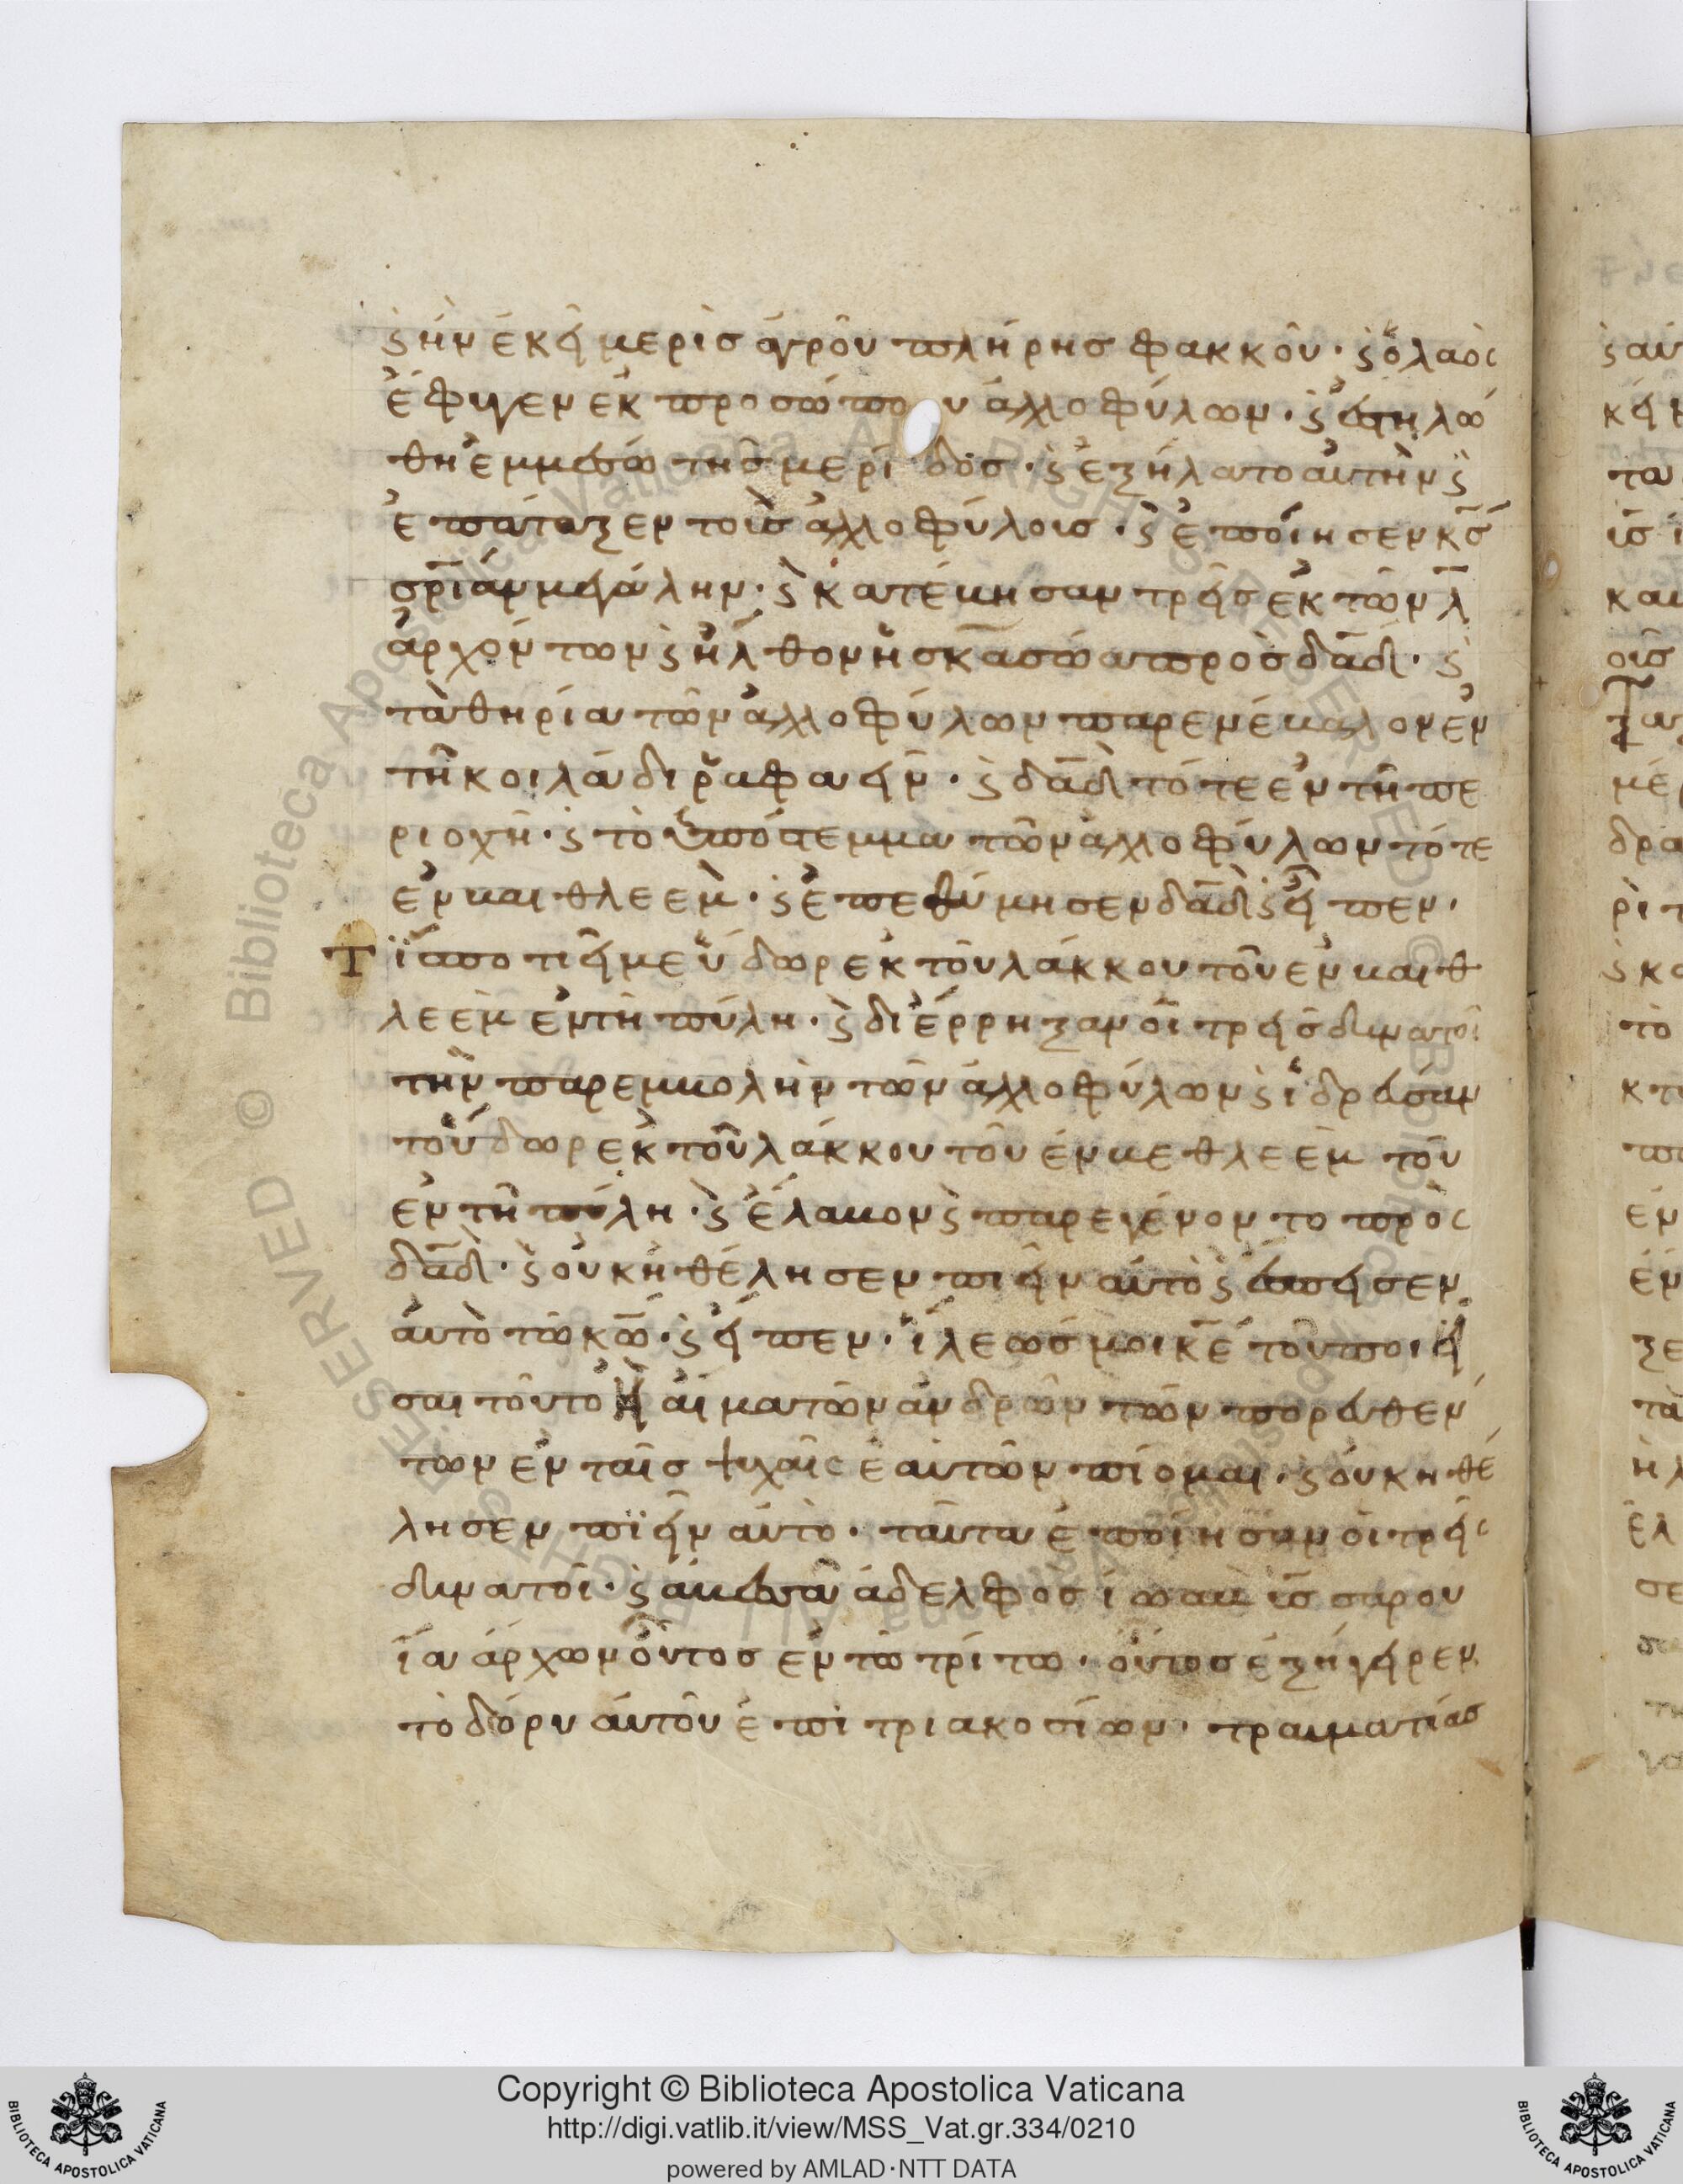 ϛ ἦν ἐκεῖ μερὶσ ἀγροῦ πλήρησ φακκοῦ· ϛ ὁ λαὸς
ἔφυγεν ἐκ προσώπου ἀλλοφύλων· ϛ ἐστηλώ
θη ἐμμέσω τῆσ μερίδοσ· ϛ ἐξήλατο αὐτὴν ϛ
ἐπάταξεν τοὺσ ἀλλοφύλοισ· ϛ ἐποίησεν κ̅σ̅
σ̅ρ̅ίαν μεγάλην· ϛ κατέβησαν τρεῖσ ἐκ τῶν λ̅
ἀρχόντων ϛ ἦλθον εἰσ κασώα πρὸσ δα̅δ̅· ϛ
τὰ θηρία τῶν ἀλλοφύλων παρενέβαλον ἐν
τῆ κοιλάδι ῥαφαείν· ϛ δα̅δ̅ τότε ἐν τῆ πε
ριοχῆ· ϛ τὸ ὑπόστεμμα τῶν ἀλλοφύλων τότε
ἐν βαιθλεεμ· ϛ ἐπεθύμησεν δα̅δ̅ ϛ εἶπεν·
Τίσ ποτιεῖ με ὕδωρ ἐκ τοῦ λάκκου τοῦ ἐν βαιθ
λεὲμ ἐν τῆ πύλη· ϛ διέρρηξαν οἱ τρεῖσ δυνατοὶ
τὴν παρεμβολὴν τῶν ἀλλοφύλων ϛ ἱδρεύσαν
το ὕδωρ ἐκ τοῦ λάκκου τοῦ ἐν βεθλεὲμ τοῦ
ἐν τῆ πύλη· ϛ ἔλαβον ϛ παρεγένοντο πρὸς
δα̅δ̅· ϛ οὐκ ἠθέλησεν πιεῖν αὐτὸ ϛ ἔσπεισεν
αὐτὸ τῶ κ̅ω̅· ϛ εἶπεν· ἵλεώσ μοι κ̅ε̅ τοῦ ποιῆ
σαι τοῦτο εἰ αἷμα τῶν ἀνδρῶν τῶν πορευθέν
των ἐν ταῖσ ψυχαῖς ἑαυτῶν πίομαι· ϛ οὐκ ἠθέ
λησεν πιεῖν αὐτὸ· ταῦτα ἐποίησαν οἱ τρεῖς
δυνατοὶ· ϛ ἀβεσσὰ ἀδελφὸσ ἰωαὺ υ̅ἱ̅σ̅ σαρου
ΐα ἄρχων οὗτοσ ἐν τῶ τρίτω· οὗτοσ ἐξήγειρεν
τὸ δόρυ αὐτοῦ ἐπὶ τριακοσίων· τραυματίασ
Copyright © Biblioteca Apostolica Vaticana
http://digi.vatlib.it/view/MSS_Vat.gr.334/0210
powered by AMLAD·NTT DATA